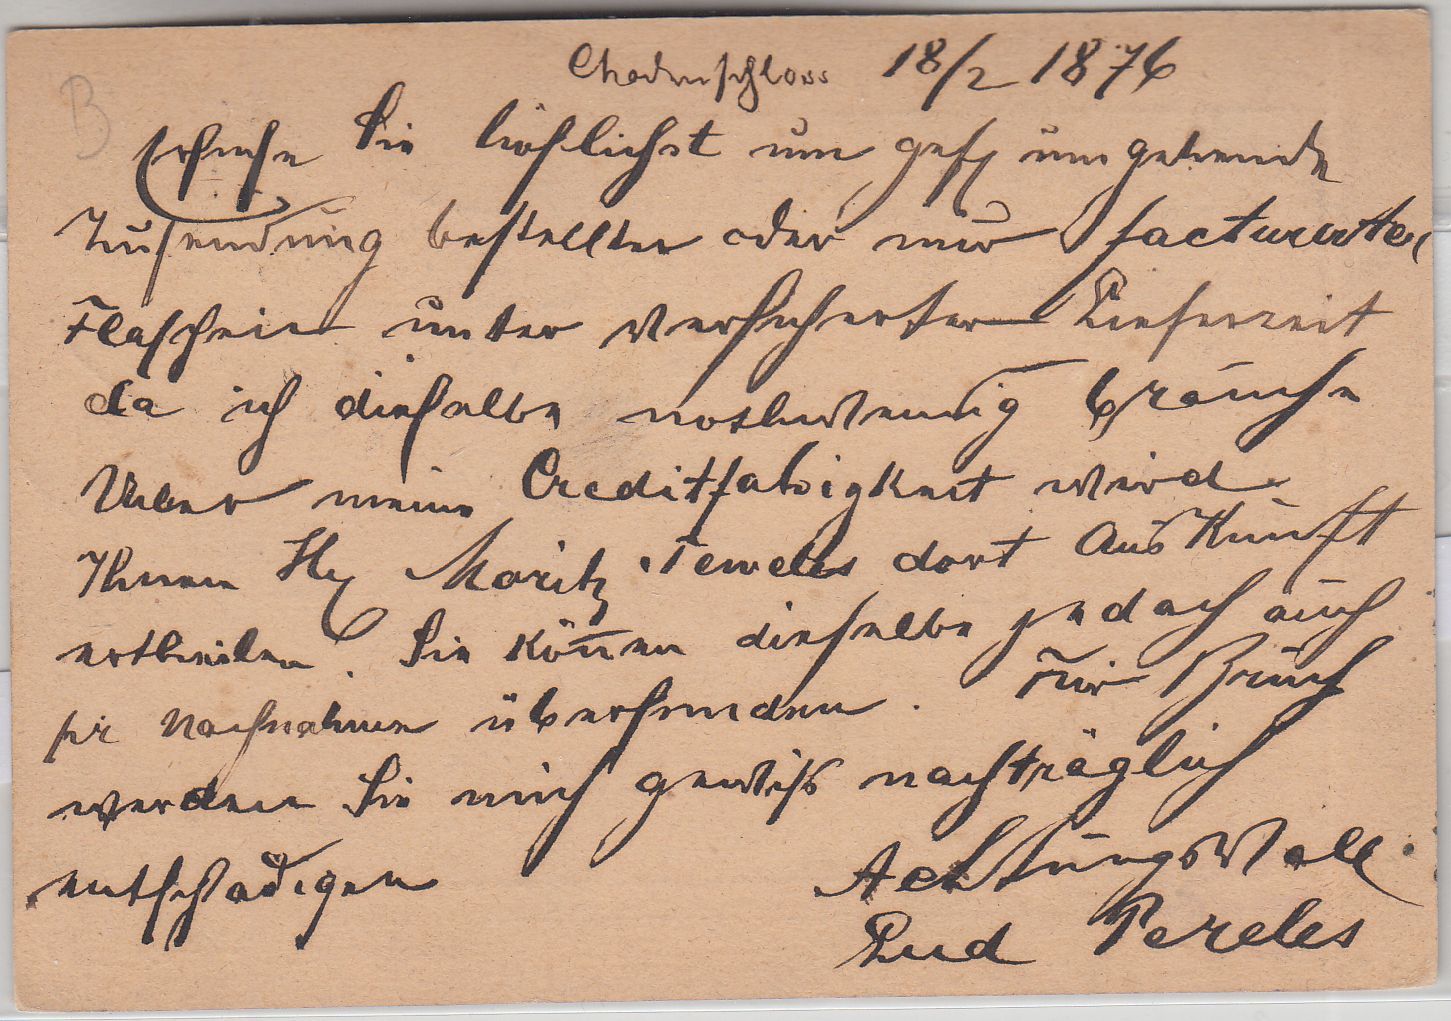 Chodenschloss 18/2 1876
Ersuche Sie höflichst um gefl umgehende
Zusendung bestellter oder mir facturirten
Flaschen unter versicherter Lieferzeit
da ich dieselbe nothwendig brauche
Ueber meine Creditfähigkeit wird
Ihnen H. Moritz Teweles dort Auskunft
ertheilen. Sie können dieselbe jedoch auch
pr Nachnahme übersenden. Für Bruch
werden Sie mich gewiß nachträglich
entschädigen
Achtungsvoll
Lud Pereles
B